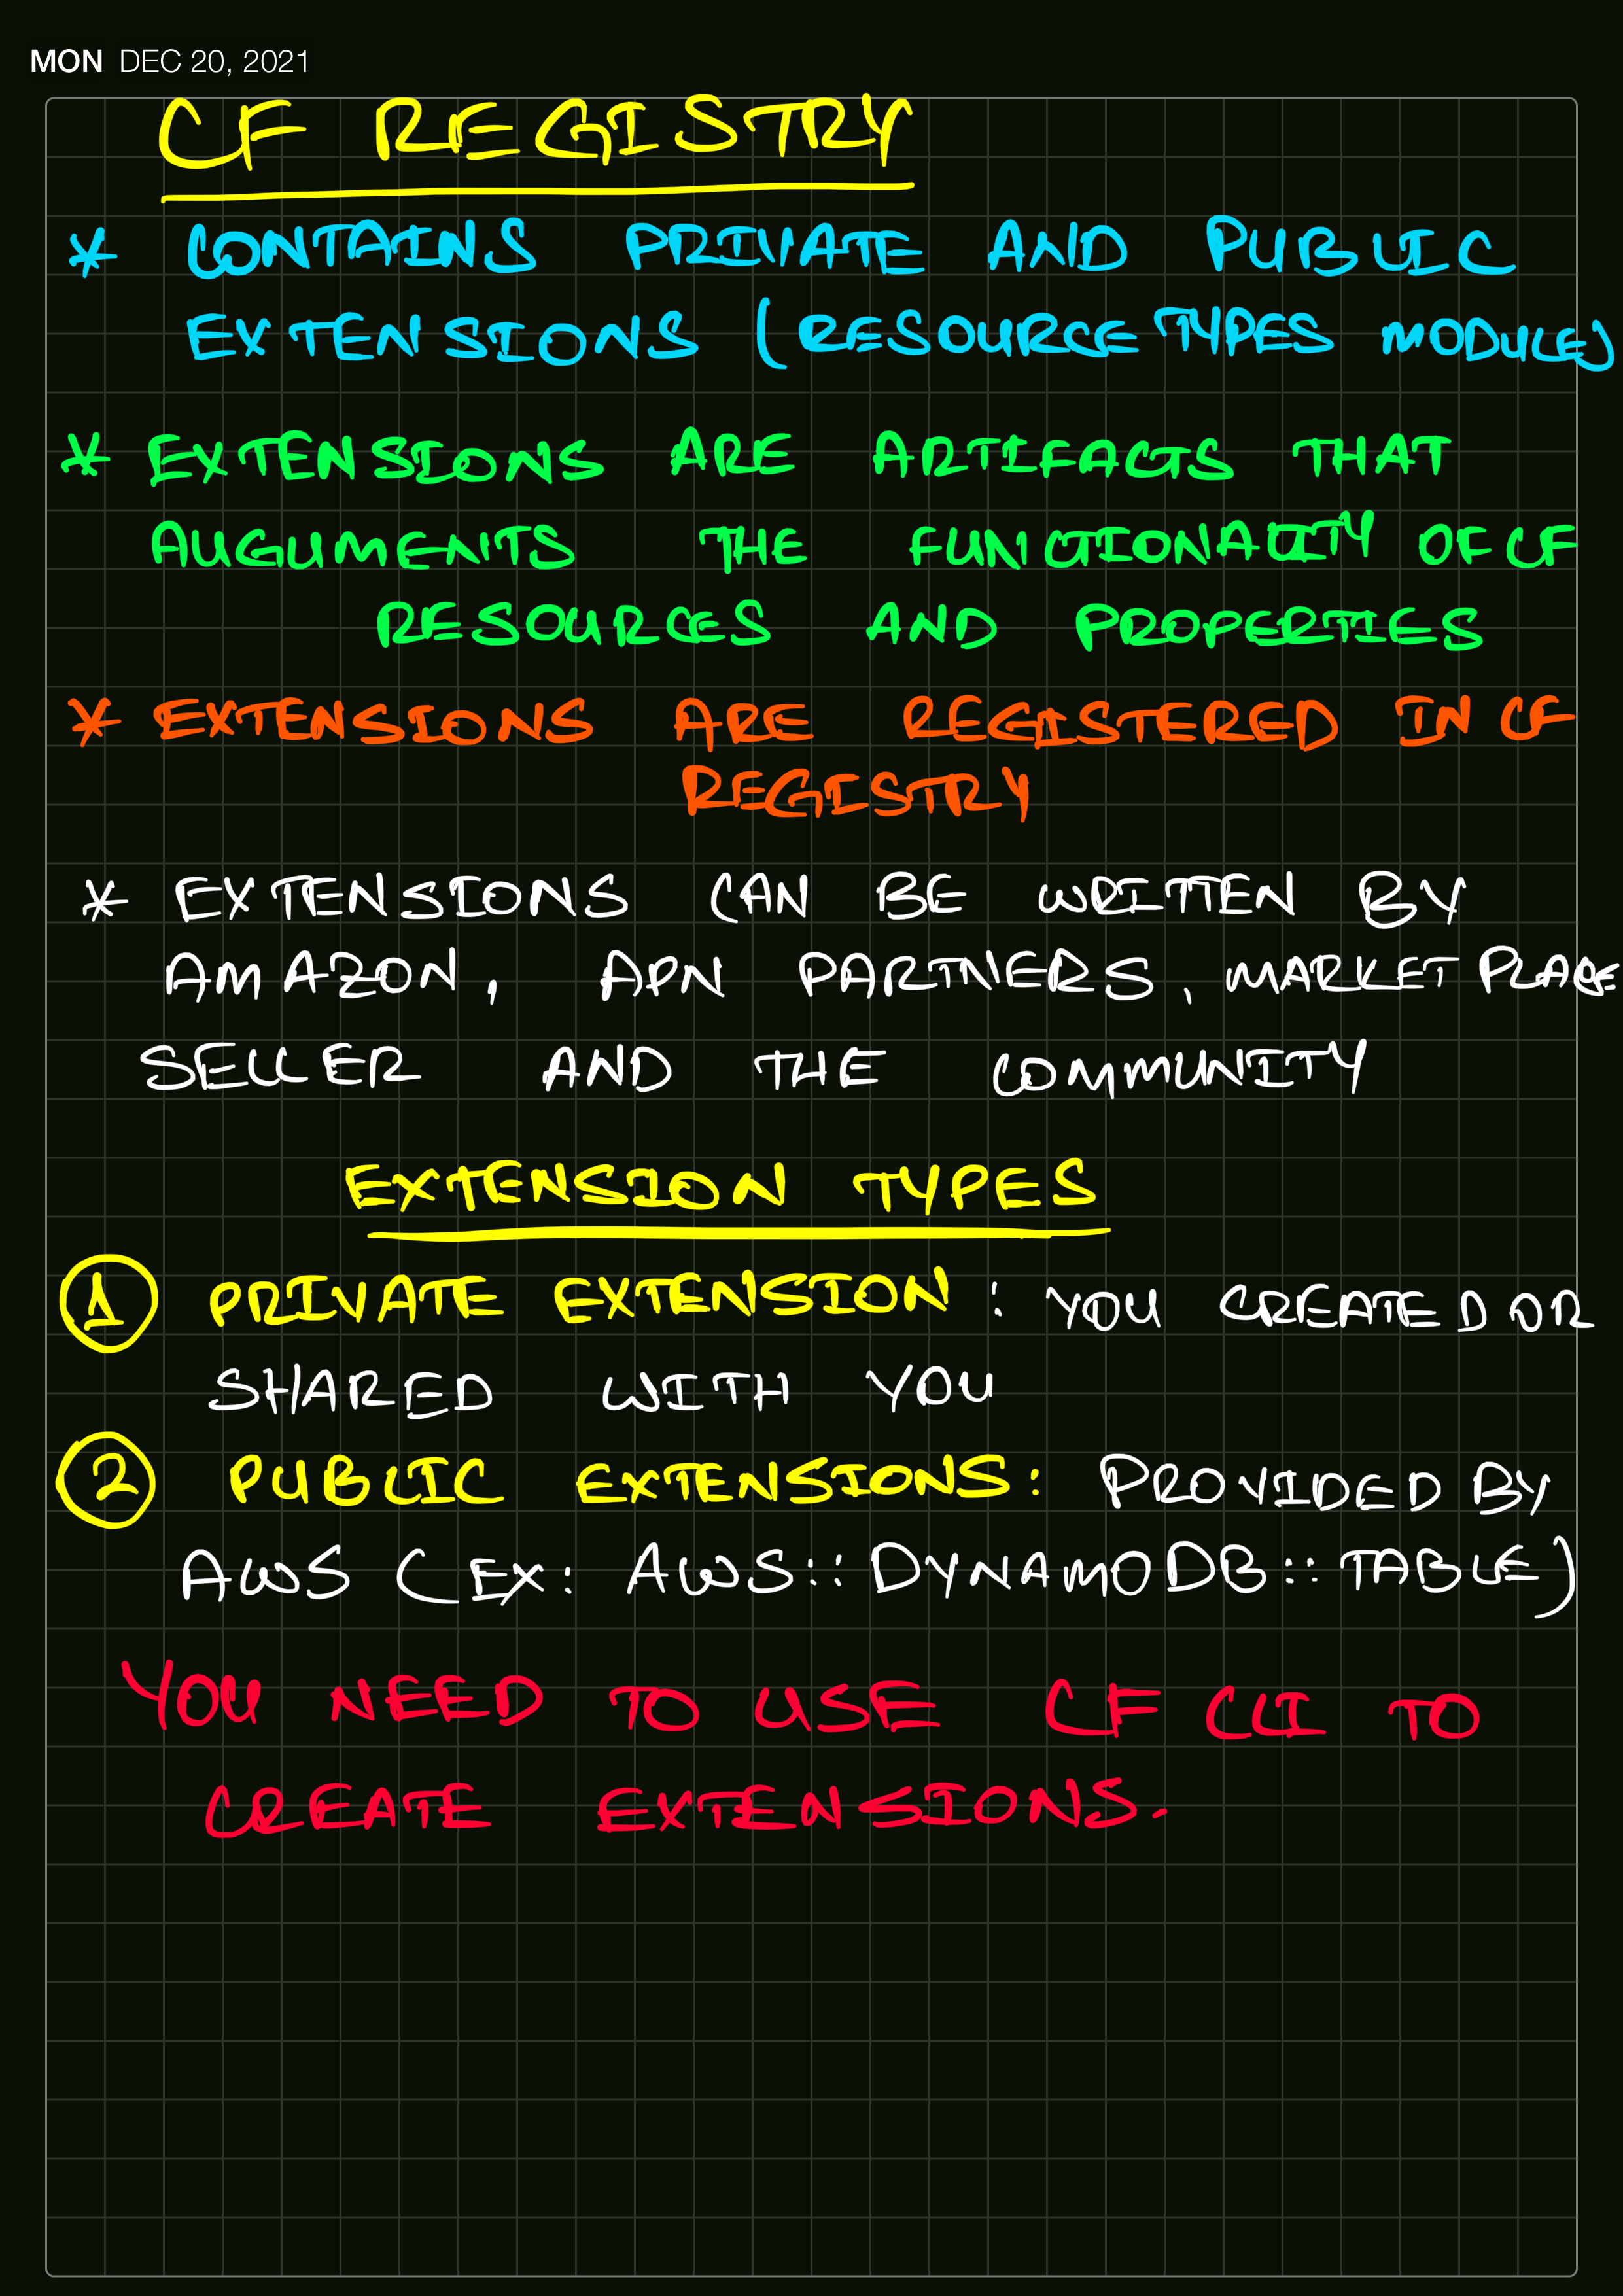 MON DEC 20, 2021
CF REGISTRY
* CONTAINS PRIVATE AND PUBLIC
EXTENSIONS (RESOURCE TYPES MODULE)
* EXTENSIONS ARE ARTIFACTS THAT
AUGUMENTS THE FUNCTIONALITY OF CF
RESOURCES AND PROPERTIES
* EXTENSIONS ARE REGISTERED IN CF
REGISTRY
* EXTENSIONS CAN BE WRITTEN BY
AMAZON, APN PARTNERS, MARKET PLACE
SELLER AND THE COMMUNITY
EXTENSION TYPES
1 PRIVATE EXTENSION : YOU CREATED OR
SHARED WITH YOU
2 PUBLIC EXTENSIONS: PROVIDED BY
AWS (EX: AWS::DYNAMODB::TABLE)
YOU NEED TO USE CF CLI TO
CREATE EXTENSIONS.